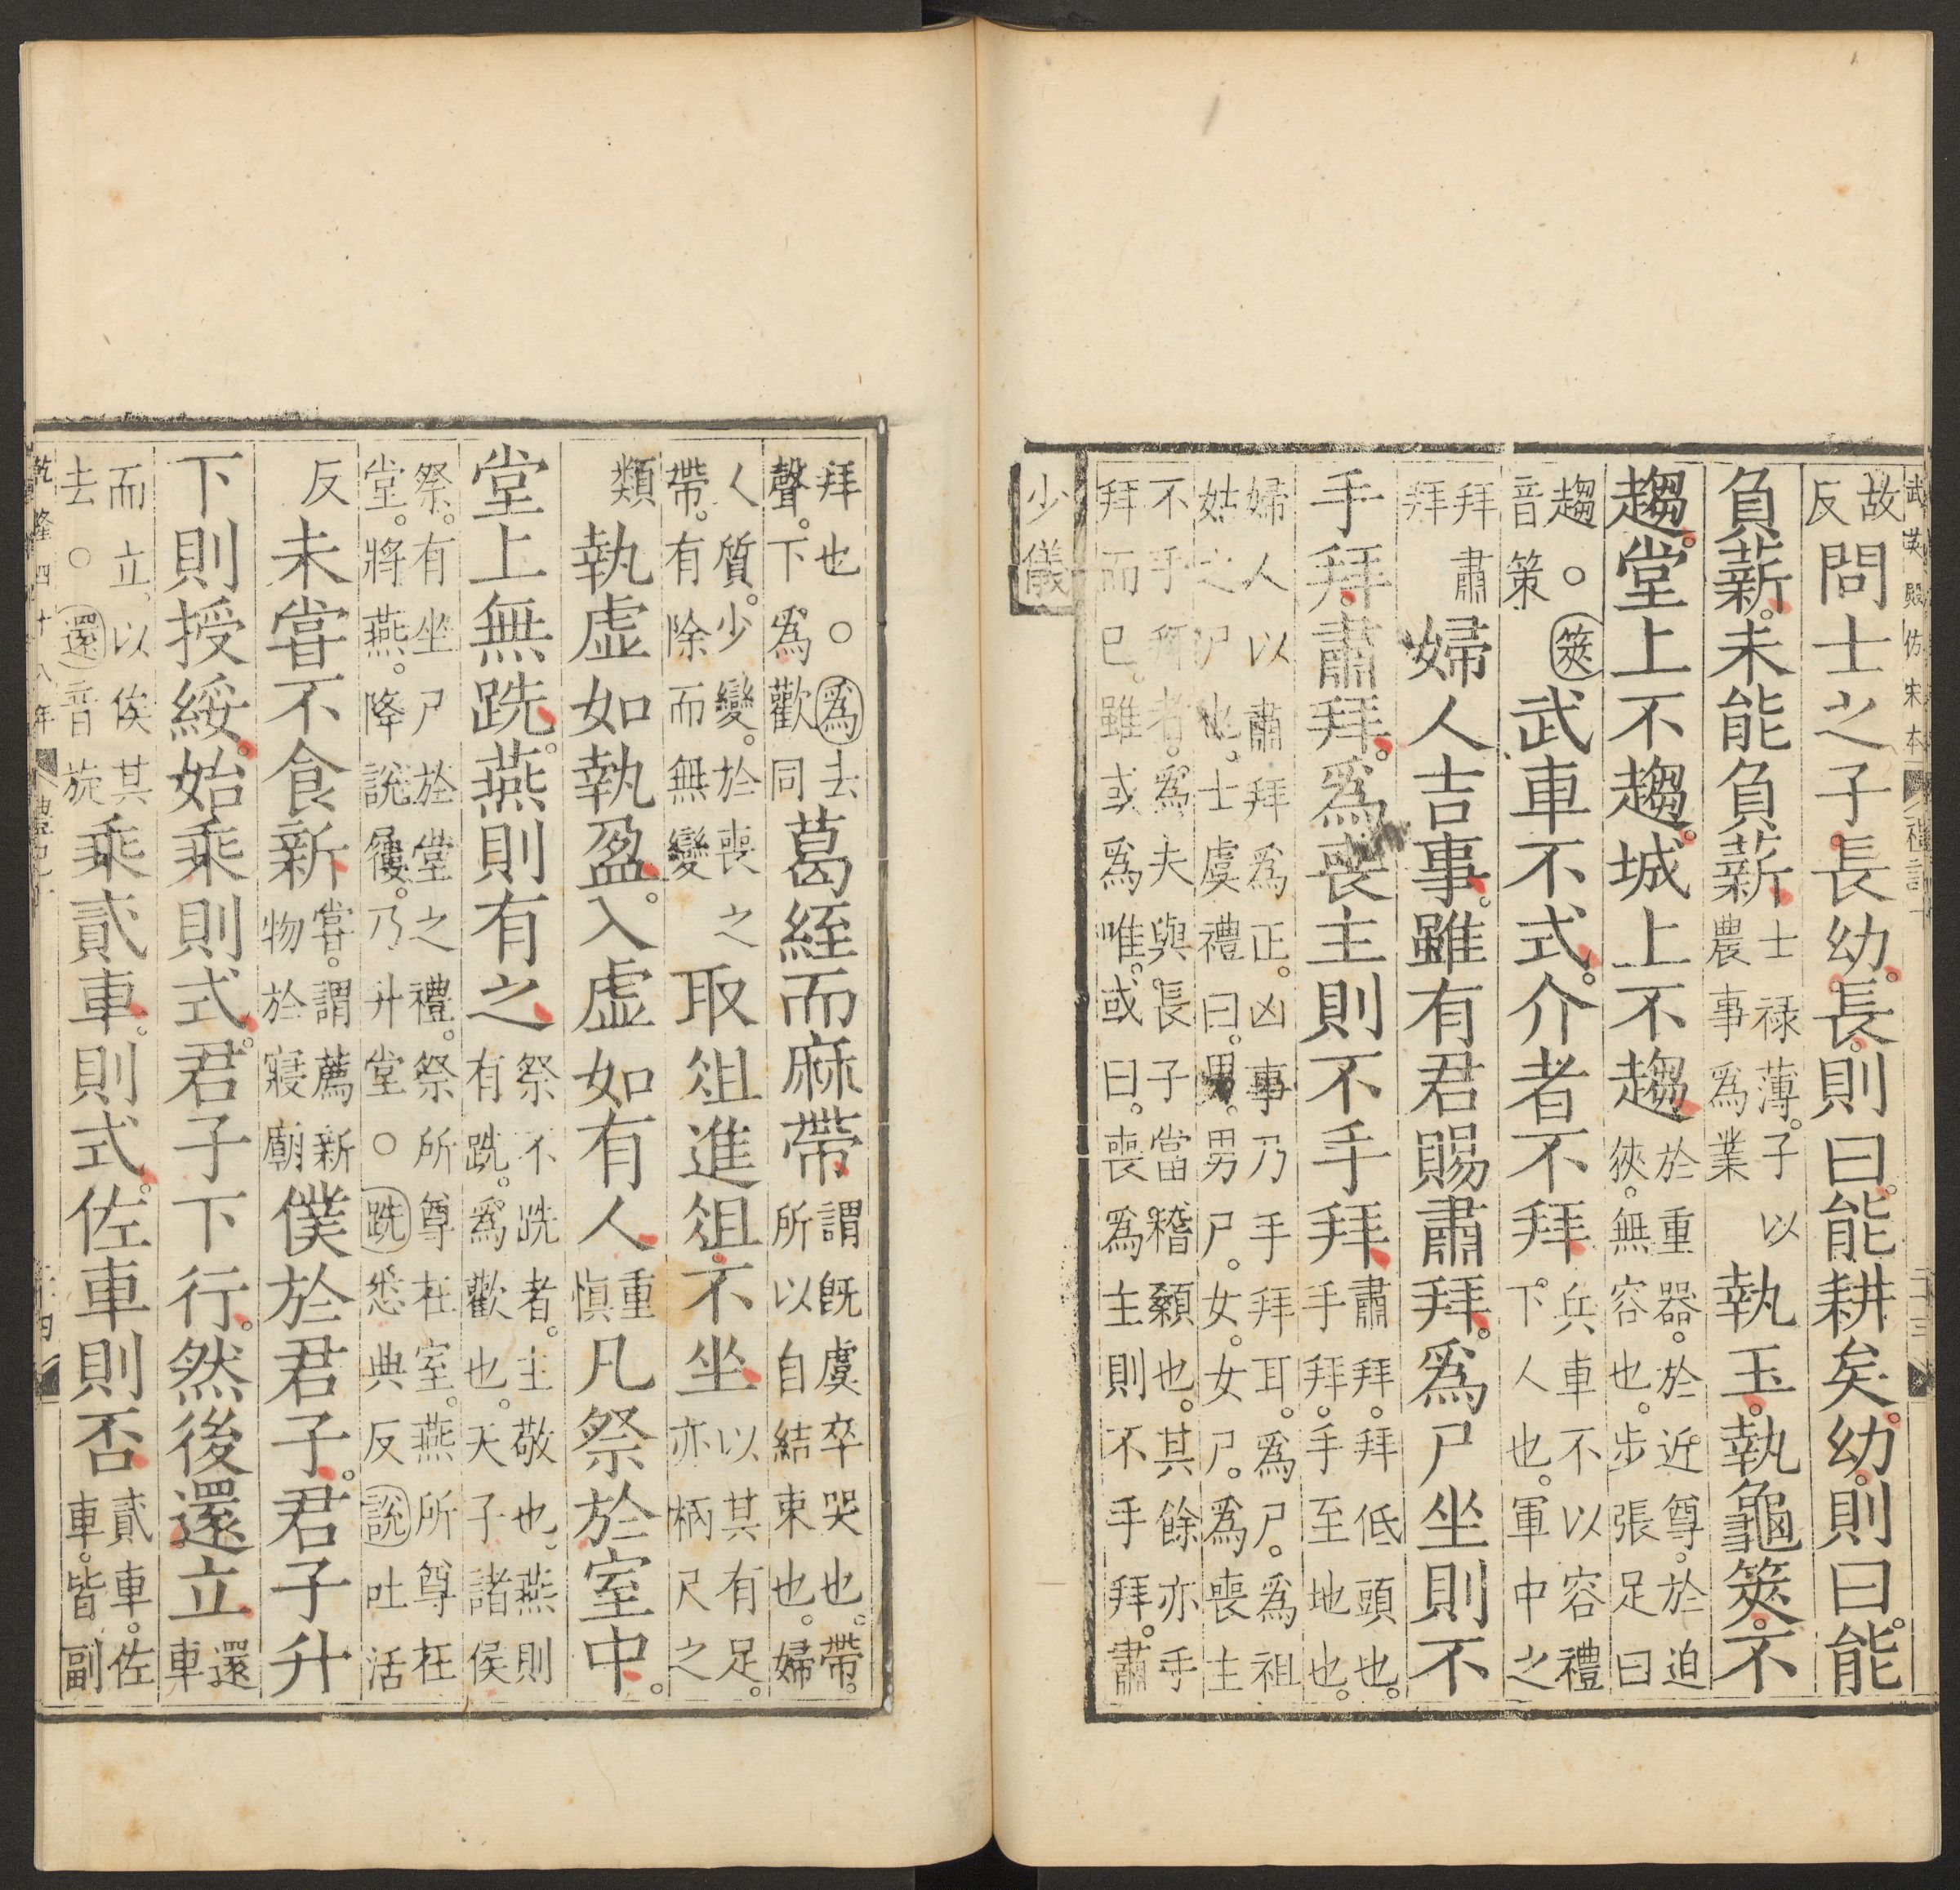 武英殿仿宋本 禮記十 二十三
故反問士之子長幼。長。則曰。能耕矣。幼。則曰。能
負薪。未能負薪士祿薄。子以農事爲業執玉。執龜筴。不
趨。堂上不趨。城上不趨於重器。於近尊。於迫狹。無容也。步張足曰
趨○筴音策武車不式。介者不拜。兵車不以容禮下人也。軍中之
拜肅拜婦人吉事。雖有君賜肅拜。爲尸坐則不
手拜。肅拜。爲喪主則不手拜肅拜。拜低頭也。手拜。手至地也。
婦人以肅拜爲正。凶事乃手拜耳。爲尸。爲祖姑之尸也。士虞禮曰。男。男尸。女。女尸。爲喪主
不手拜者。爲夫與長子當稽顙也。其餘亦手拜而已。雖或爲唯。或曰。喪爲主則不手拜。肅
少儀
拜也○爲去聲。下爲歡同葛絰而麻帶謂旣虞卒哭也。帶。所以自結束也。婦
人質。少變。於喪之帶。有除而無變取俎進俎。不坐以其有足。亦柄尺之
類執虛如執盈。入虛如有人重愼凡祭於室中。
堂上無跣。燕則有之祭不跣者。主敬也。燕則有跣。爲歡也。天子諸侯
祭。有坐尸於堂之禮。祭所尊在室。燕所尊在堂。將燕。降說屨。乃升堂○跣悉典反說吐活
反未嘗不食新嘗。謂薦新物於寢廟僕於君子。君子升
下則授綏。始乘則式。君子下行。然後還立還車
而立。以俟其去○還音旋乘貳車。則式。佐車則否貳車。佐車。皆副
乾隆四十八年 禮記十 二十四